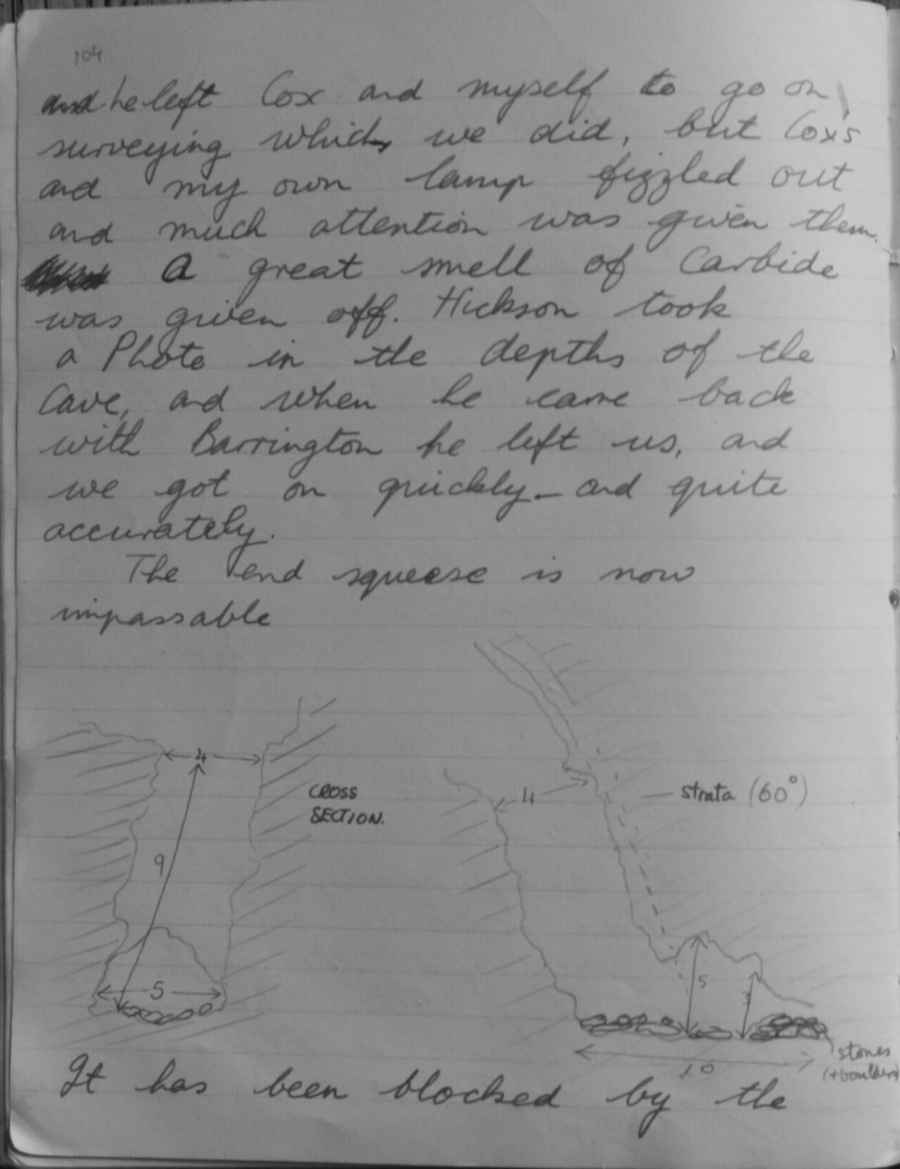 104
and he left Cox and myself to go on
surveying which we did, but Cox's
and my own lamp fizzled out
and much attention was given them.
A great smell of Carbide
was given off. Hickson took
a Photo in the depths of the
Cave, and when he came back
with Barrington he left us, and
we got on quickly - and quite
accurately.
The end squeese is now
impassable
4
9
5
CROSS
SECTION.
4
strata (60°)
5
3
10
stones
(+boulders)
It has been blocked by the